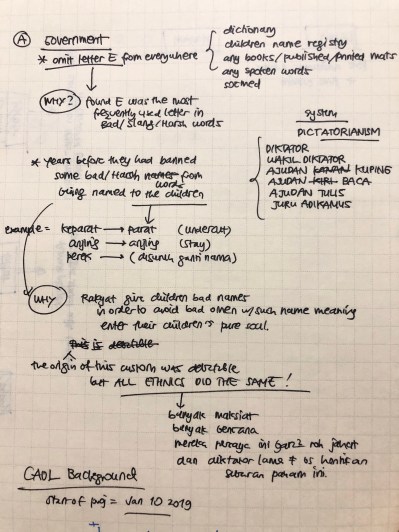 A Government
* omit letter E from everywhere
dictionary
children name registry
any books/published/printed mats
any spoken words
socmed
WHY? found E was the most
frequently used letter in
Bad/Slang/Harsh words
system
DICTATORIANISM
DIKTATOR
WAKIL DIKTATOR
AJUDAN KANAN KUPING
AJUDAN KIRI BACA
AJUDAN TULIS
JURU ADIKAMUS
* years before they had banned
some bad/Harsh names from
words
being named to the children
example = keparat → parat (undercut)
anjing → anjing (stay)
perek → (disuruh ganti nama)
WHY Rakyat give children bad names
in order to avoid bad omen w/such name meaning
enter their children's pure soul.
This is debatable
the origin of this custom was debatable
but ALL ETHNICS DID THE SAME!
banyak maksiat
banyak bencana
mereka percaya ini gara2 roh jahat
dan diktator lama # bs hentikan
sebaran paham ini.
GAOL Background
start of proj = Jan 10 2019